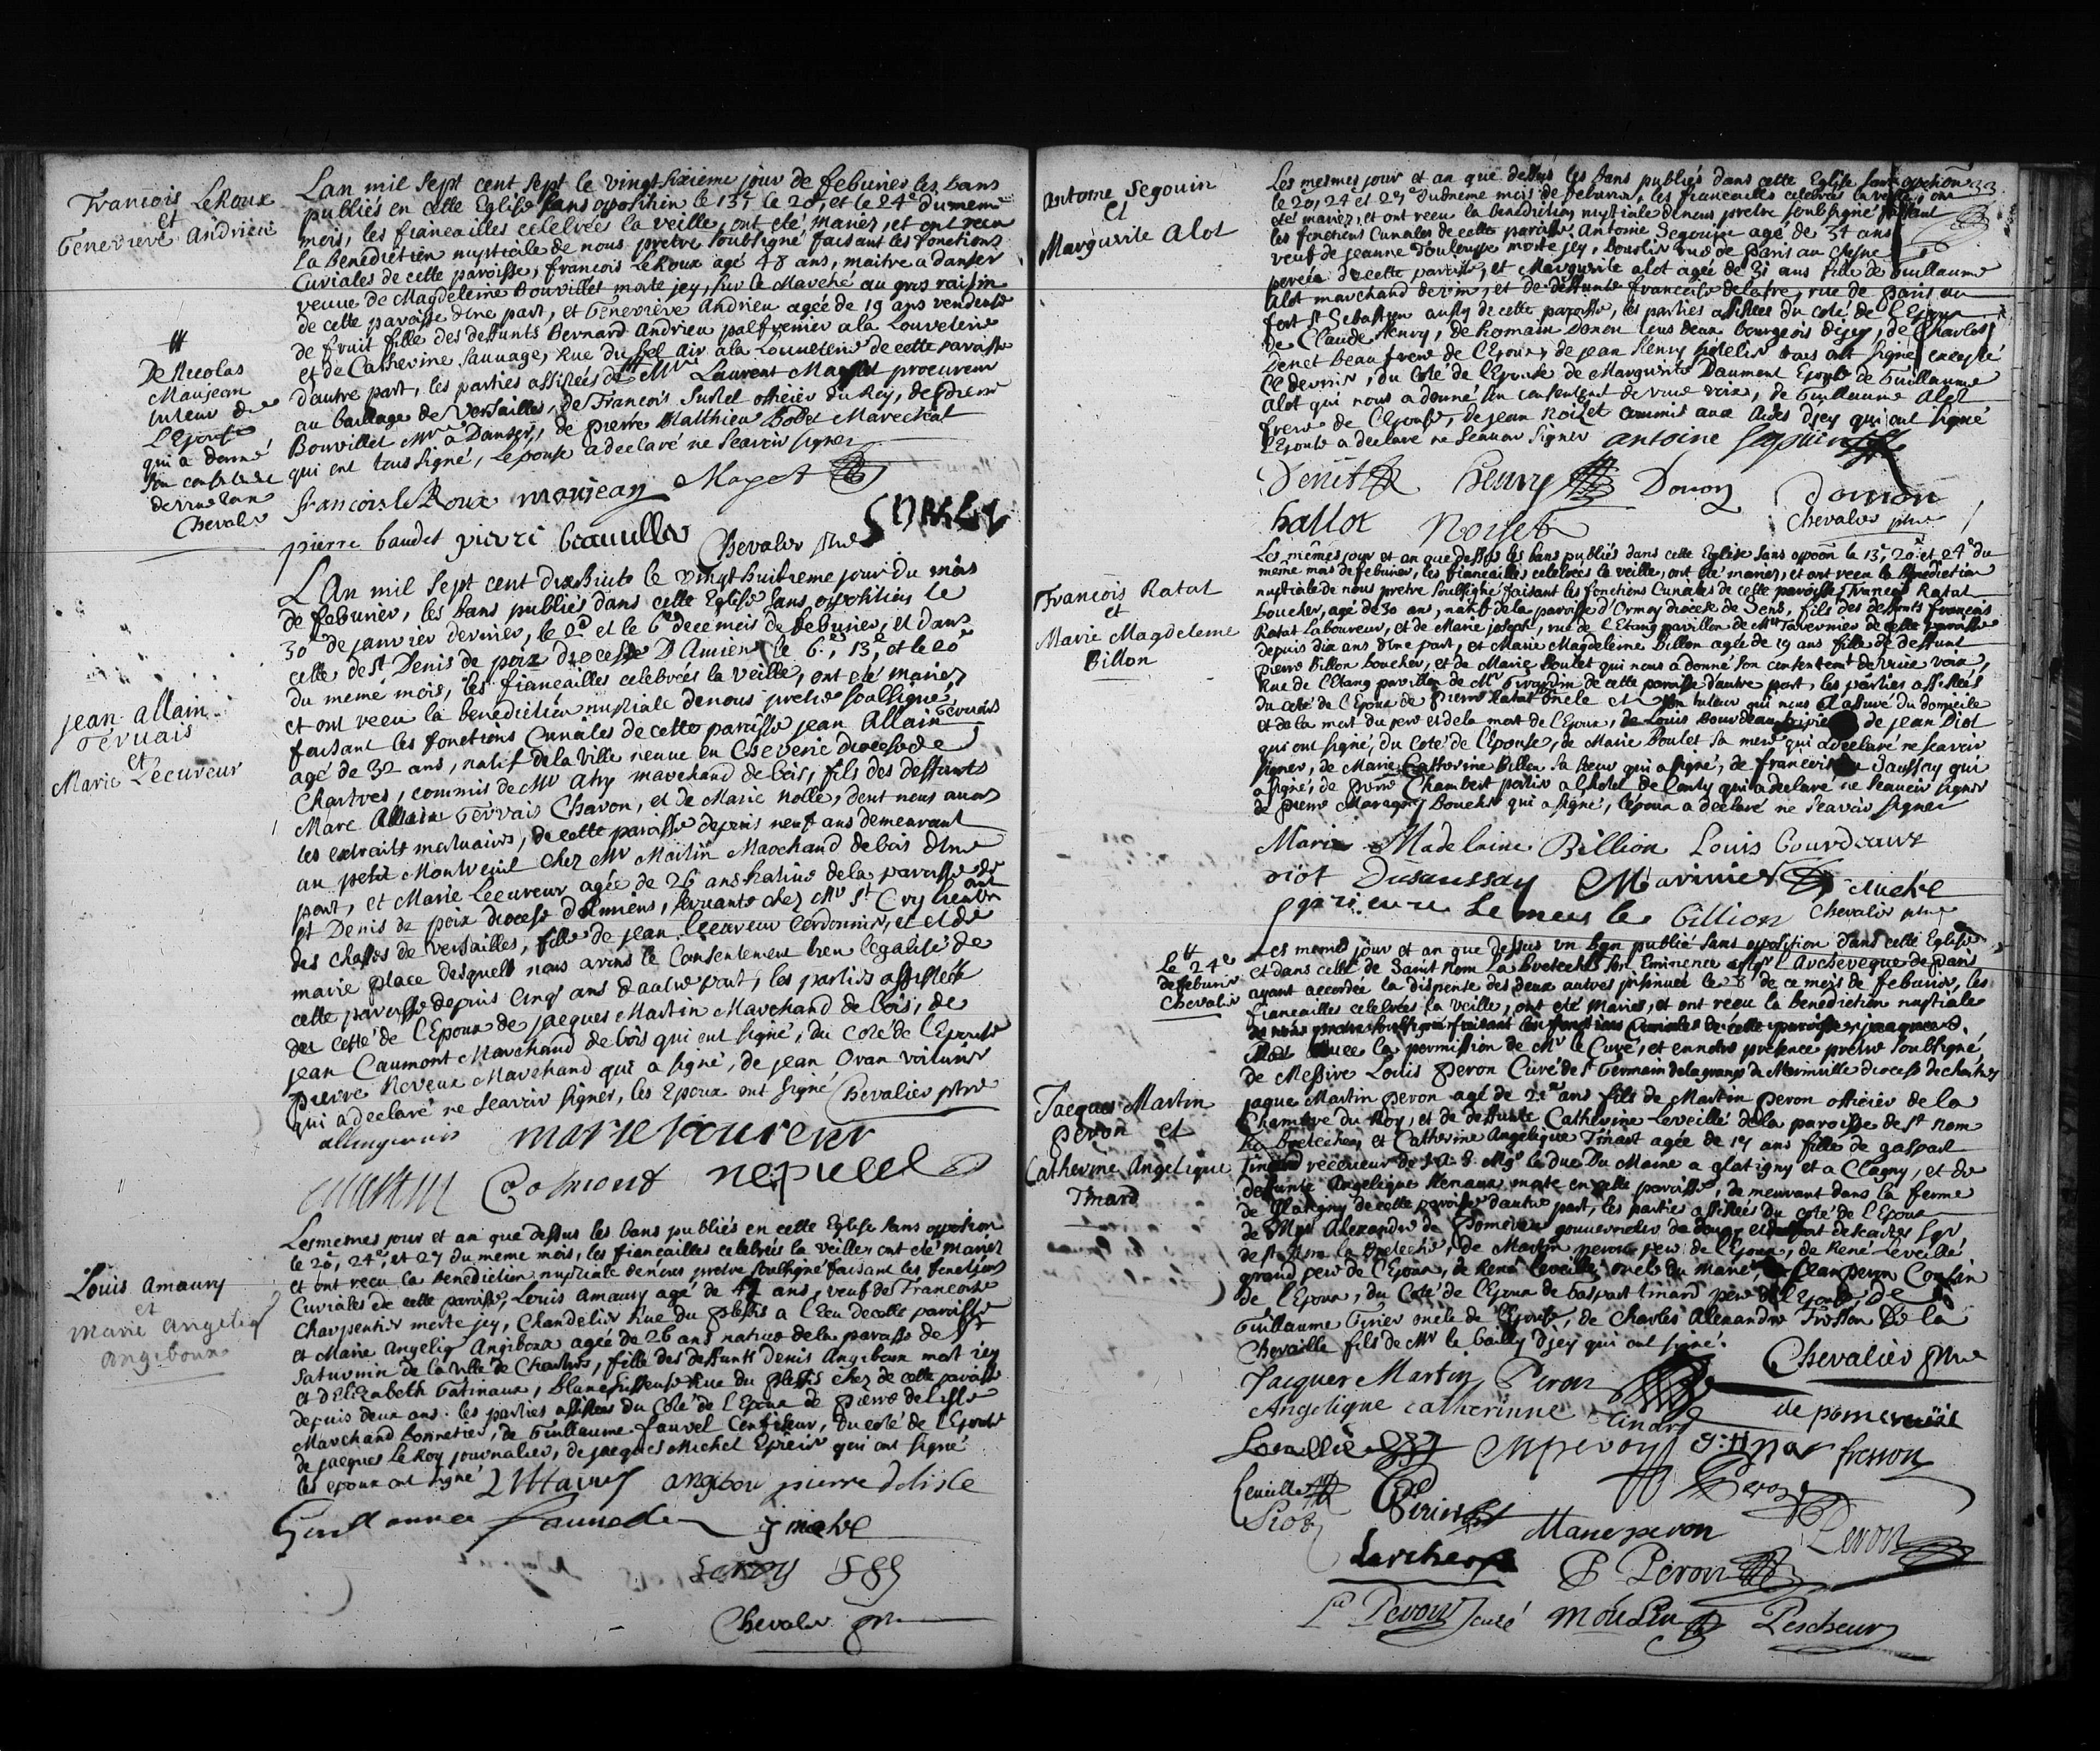 François LeRoux
et
Genevieve Andrieu
Lan mil Sept cent Sept le vingt sixieme jour de feburier les bans
publiés en cette Eglise sans oposition le 13, le 20, et le 24e du meme
mois, les fiancailles celebrées la veille, ont eté mariez, et ont receu
la benediction nuptiale de nous pretre soubsigné faisant les fonctions
Curiales de cette paroisse, francois LeRoux agé 48 ans, maitre a danser
veuve de Magdeleine Bouvillet morte icy, sur le Marché au gros raisin
de cette paroisse d'une part, et Geneviève Andrieu agée de 19 ans vendeuse
de fruit fille des deffunts Bernard Andrieu palfrenier a la Louveterie
et de Catherine Sauvage, Rue du bel air a la Louveterie de cette paroisse
d'autre part, les parties assistées de Mr Laurent Maget procureur
au bailliage de Versailles, de François Surlet officier du Roy, de pierre
Bouvillet Mtre a Danser, de pierre Matthieu Bodet Marechal
qui ont tous signé, L'epouse a declaré ne Scavoir signer
De Nicolas
Maujean
tuteur de
L'Epouse
qui a donné
son consentement
de vive voix
Chevalier
francois le Roux maujean Maget
pierre baudet pierre bouuillet Chevalier ptre SURLET
jean allain
Geruais
et
Marie Lecureur
L'An mil Sept cent dix huit le vingt huitieme jour du mois
de feburier, les bans publiés dans cette Eglise sans oposition le
30e de janvier dernier, le 2e et le 6e de ce mois de feburier, et dans
celle de St Denis de poix diocese D'Amiens le 6e, 13e, et le 20e
du meme mois, les fiancailles celebrées la veille, ont eté mariez
et ont receu la benediction nuptiale de nous pretre soussigné
faisant les fonctions Curiales de cette paroisse jean Allain Geruais
agé de 32 ans, natif de la ville neuve en Cheverie diocese de
Chartres, commis de Mr Atry marchand de bois, fils des deffunts
Marc Allain Gervais Charon, et de Marie Nolle, dont nous avons
les extraits mortuaires, de cette paroisse depuis neuf ans demeurant
au petit Montreuil chez Mr Martin Marchand de bois d'une
part, et Marie Lecureur agée de 26 ans native de la paroisse de
St Denis de poix diocese d'Amiens, servante chez Mr St Cry lieutenant
des chasses de Versailles, fille de jean Lecureur Cordonnier, et de
marie place desquels nous avons le Consentement bien legalisé de
cette paroisse depuis cinq ans d'autre part, les parties assistées
du costé de l'Epoux de jacques Martin Marchand de bois, de
jean Caumont Marchand de bois qui ont signé, du coté de l'Epouse
pierre Neveux Marchand qui a signé, de jean Ovan voiturier
qui a declaré ne Scavoir signer, les Epoux ont signé Chevalier ptre
allingervais marie lecureur
martin Comont nepueu
Louis Amaury
et
Marie Angelique
Angiboux
Les memes jour et an que dessus les bans publiés en cette Eglise sans oposition
le 20, 24, et 27 du meme mois, les fiancailles celebrées la veille, ont eté mariez
et ont receu la benediction nuptiale de nous pretre soubsigné faisant les fonctions
Curiales de cette paroisse, Louis Amaury agé de 42 ans, veuf de Francoise
Charpentier morte icy, Chandelier Rue du plessis a l'Ecu de cette paroisse
et Marie Angeliq Angiboux agée de 26 ans native de la paroisse de St
Saturnin de la ville de Chartres, fille des deffunts Denis Angiboux mort icy
et d'Elizabeth Gatinaux, blanchisseuse Rue du plessis chez de cette paroisse
depuis deux ans. les parties assistées du Coté de l'Epoux de pierre delisle
Marchand bonnetier, de Guillaume fauvel Confiseur, du coté de l'Epouse
de jacques Le Roy journalier, de jacques Michel Epicier qui ont signé
les epoux ont signé LHAmaury angibou pierre delisle
Guillaume fauuel j michel
Leroy
Chevalier ptre
Antoine Segouin
et
Margurite Alot
33
Les mesmes jour et an que dessus les bans publiés dans cette Eglise sans oposition
le 20, 24 et 27 du meme mois de feburier, les fiancailles celebrées la veille, ont
eté mariez, et ont receu la benediction nuptiale de nous pretre soubsigné faisant
les fonctions Curiales de cette paroisse Antoine Segouin agé de 34 ans
veuf de jeanne Toulouse morte icy, bourlier rue de paris au chesne
percée de cette paroisse, et Margurite alot agée de 31 ans fille de Guillaume
Alot marchand de vin, et de deffunte francoise delatre, rue de paris au
fort St Sebastien aussy de cette paroisse, les parties assistées du coté de l'Epoux
de Claude Henry, de Romain Donon tous deux bourgeois d'icy, de Charles
Denet beau frere de l'Epoux, de jean Henry hotelier tous ont signé excepté
ce dernier, du coté de l'Epouse de Margurite Daumont Epouse de Guillaume
Alot qui nous a donné son consentement de vive voix, de Guillaume Alot
frere de l'Epouse, de jean Noizet commis aux Aides d'icy qui ont signé
l'Epouse a declaré ne Scauoir Signer antoine segouin
Denet henry Donon donon
hallot Noiset Chevalier ptre
François Ratat
et
Marie Magdeleine
Billon
Les mêmes jour et an que dessus les bans publiés dans cette Eglise sans opoon le 13e, 20e et 24e du
même mois de feburier, les fiancailles celebrées la veille, ont eté mariez, et ont receu la benediction
nuptiale de nous pretre soussigné faisant les fonctions Curiales de cette paroisse, François Ratat
boucher, agé de 30 ans, natif de la paroisse d'Ormoy diocese de Sens, fils des deffunts françois
Ratat Laboureur, et de Marie joseph, rue de l'Etang pavillon de Mr Tavernier de cette paroisse
depuis dix ans d'une part, et Marie Magdeleine Billon agée de 19 ans fille de deffunt
pierre Billon boucher, et de Marie Boulet qui nous a donné son consentemt de vive voix,
Rue de l'Etang pavillon de Mr Girardin de cette paroisse d'autre part, les parties assistées
du coté de l'Epoux de pierre Ratat oncle et son tuteur qui nous a assuré du domicile
et de la mort du pere et de la mort de l'Epoux, de Louis Bourdeaux de jean Diot
qui ont signé, du coté de l'epouse, de Marie Boulet sa mere qui a declaré ne scavoir
signer, de Marie Catherine Billon sa soeur qui a signé, de francois du Saussay qui
a signé, de pierre Chambert portier a l'hotel de Conty qui a declaré ne scavoir signer
de pierre Maragny boucher qui a signé, l'epoux a declaré ne scavoir signer
Marie Madelaine Billion Louis bourdeaux
diot Dusaussay Marinier michel
le mees le billion Chevalier ptre
Le 24e
de feburier
Chevalier
Jacques Martin
Peron et
Catherine Angelique
Tinard
Les memes jour et an que dessus un ban publié sans oposition dans cette Eglise
et dans celle de Saint Nom La bretesche Son Eminence Mgr l'Archeveque de paris
ayant accordée la dispense des deux autres insinuée le 8 de ce mois de feburier, les
fiancailles celebrées la veille, ont eté mariés, et ont receu la benediction nuptiale
de nous pretre soubsigné faisant les fonctions Curiales de cette paroisse jacques
avec la permission de Mr le Curé, et en notre presence pretre soubsigné
de Messire Louis Peron Curé de St Germain de la grange de Morinville diocese de chartres
jaque Martin peron agé de 21 ans fils de Martin peron officier de la
Chambre du Roy, et de deffunte Catherine Leveillé de la paroisse de St Nom
la bretesche, et Catherine Angelique Tinart agée de 19 ans fille de gaspart
Tinard receveur de S. A. S. Mgr le Duc Du Maine a glatigny et a Clagny, et de
deffunte Angelique Renaux morte en cette paroisse, demeurant dans la ferme
de Glatigny de cette paroisse d'autre part, les parties assistées du coté de l'Epoux
de Mgr Alexandre de Pomereu gouverneur de Douay et du fort descarpes Sgr
de St Nom la bretesche, de Martin peron pere de l'Epoux, de René Leveillé
grand pere de l'Epoux, de René Leveillé oncle du marié, de jean peron Cousin
de l'Epoux, du Coté de l'Epouse de Gaspart tinard pere de l'Epouse de
Guillaume Girier oncle de l'Epouse, de Charles Alexandre Fresson De la
Chevaille fils de Mr le bailly d'icy qui ont signé.
Chevalier Ptre
Jacques Martin Peron
Angelique catherinne tinard de pomereu
Leveillé Mperon g. tinar fresson
Leveillé Girier Peron
Marie peron Peron
Larcher P Peron
Peron curé Moulin Pescheur